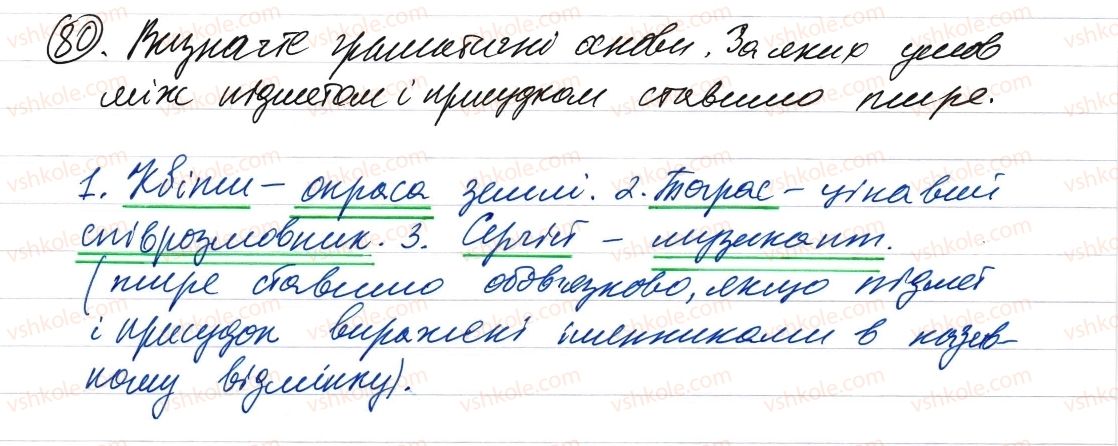 80. Визначте граматичні основи. За яких умов
між підметом і присудком ставимо тире.
1. Квіти – окраса землі. 2. Тарас – цікавий
співрозмовник. 3. Сергій – музикант.
(тире ставимо обов'язково, якщо підмет
і присудок виражені іменниками в назив-
ному відмінку).